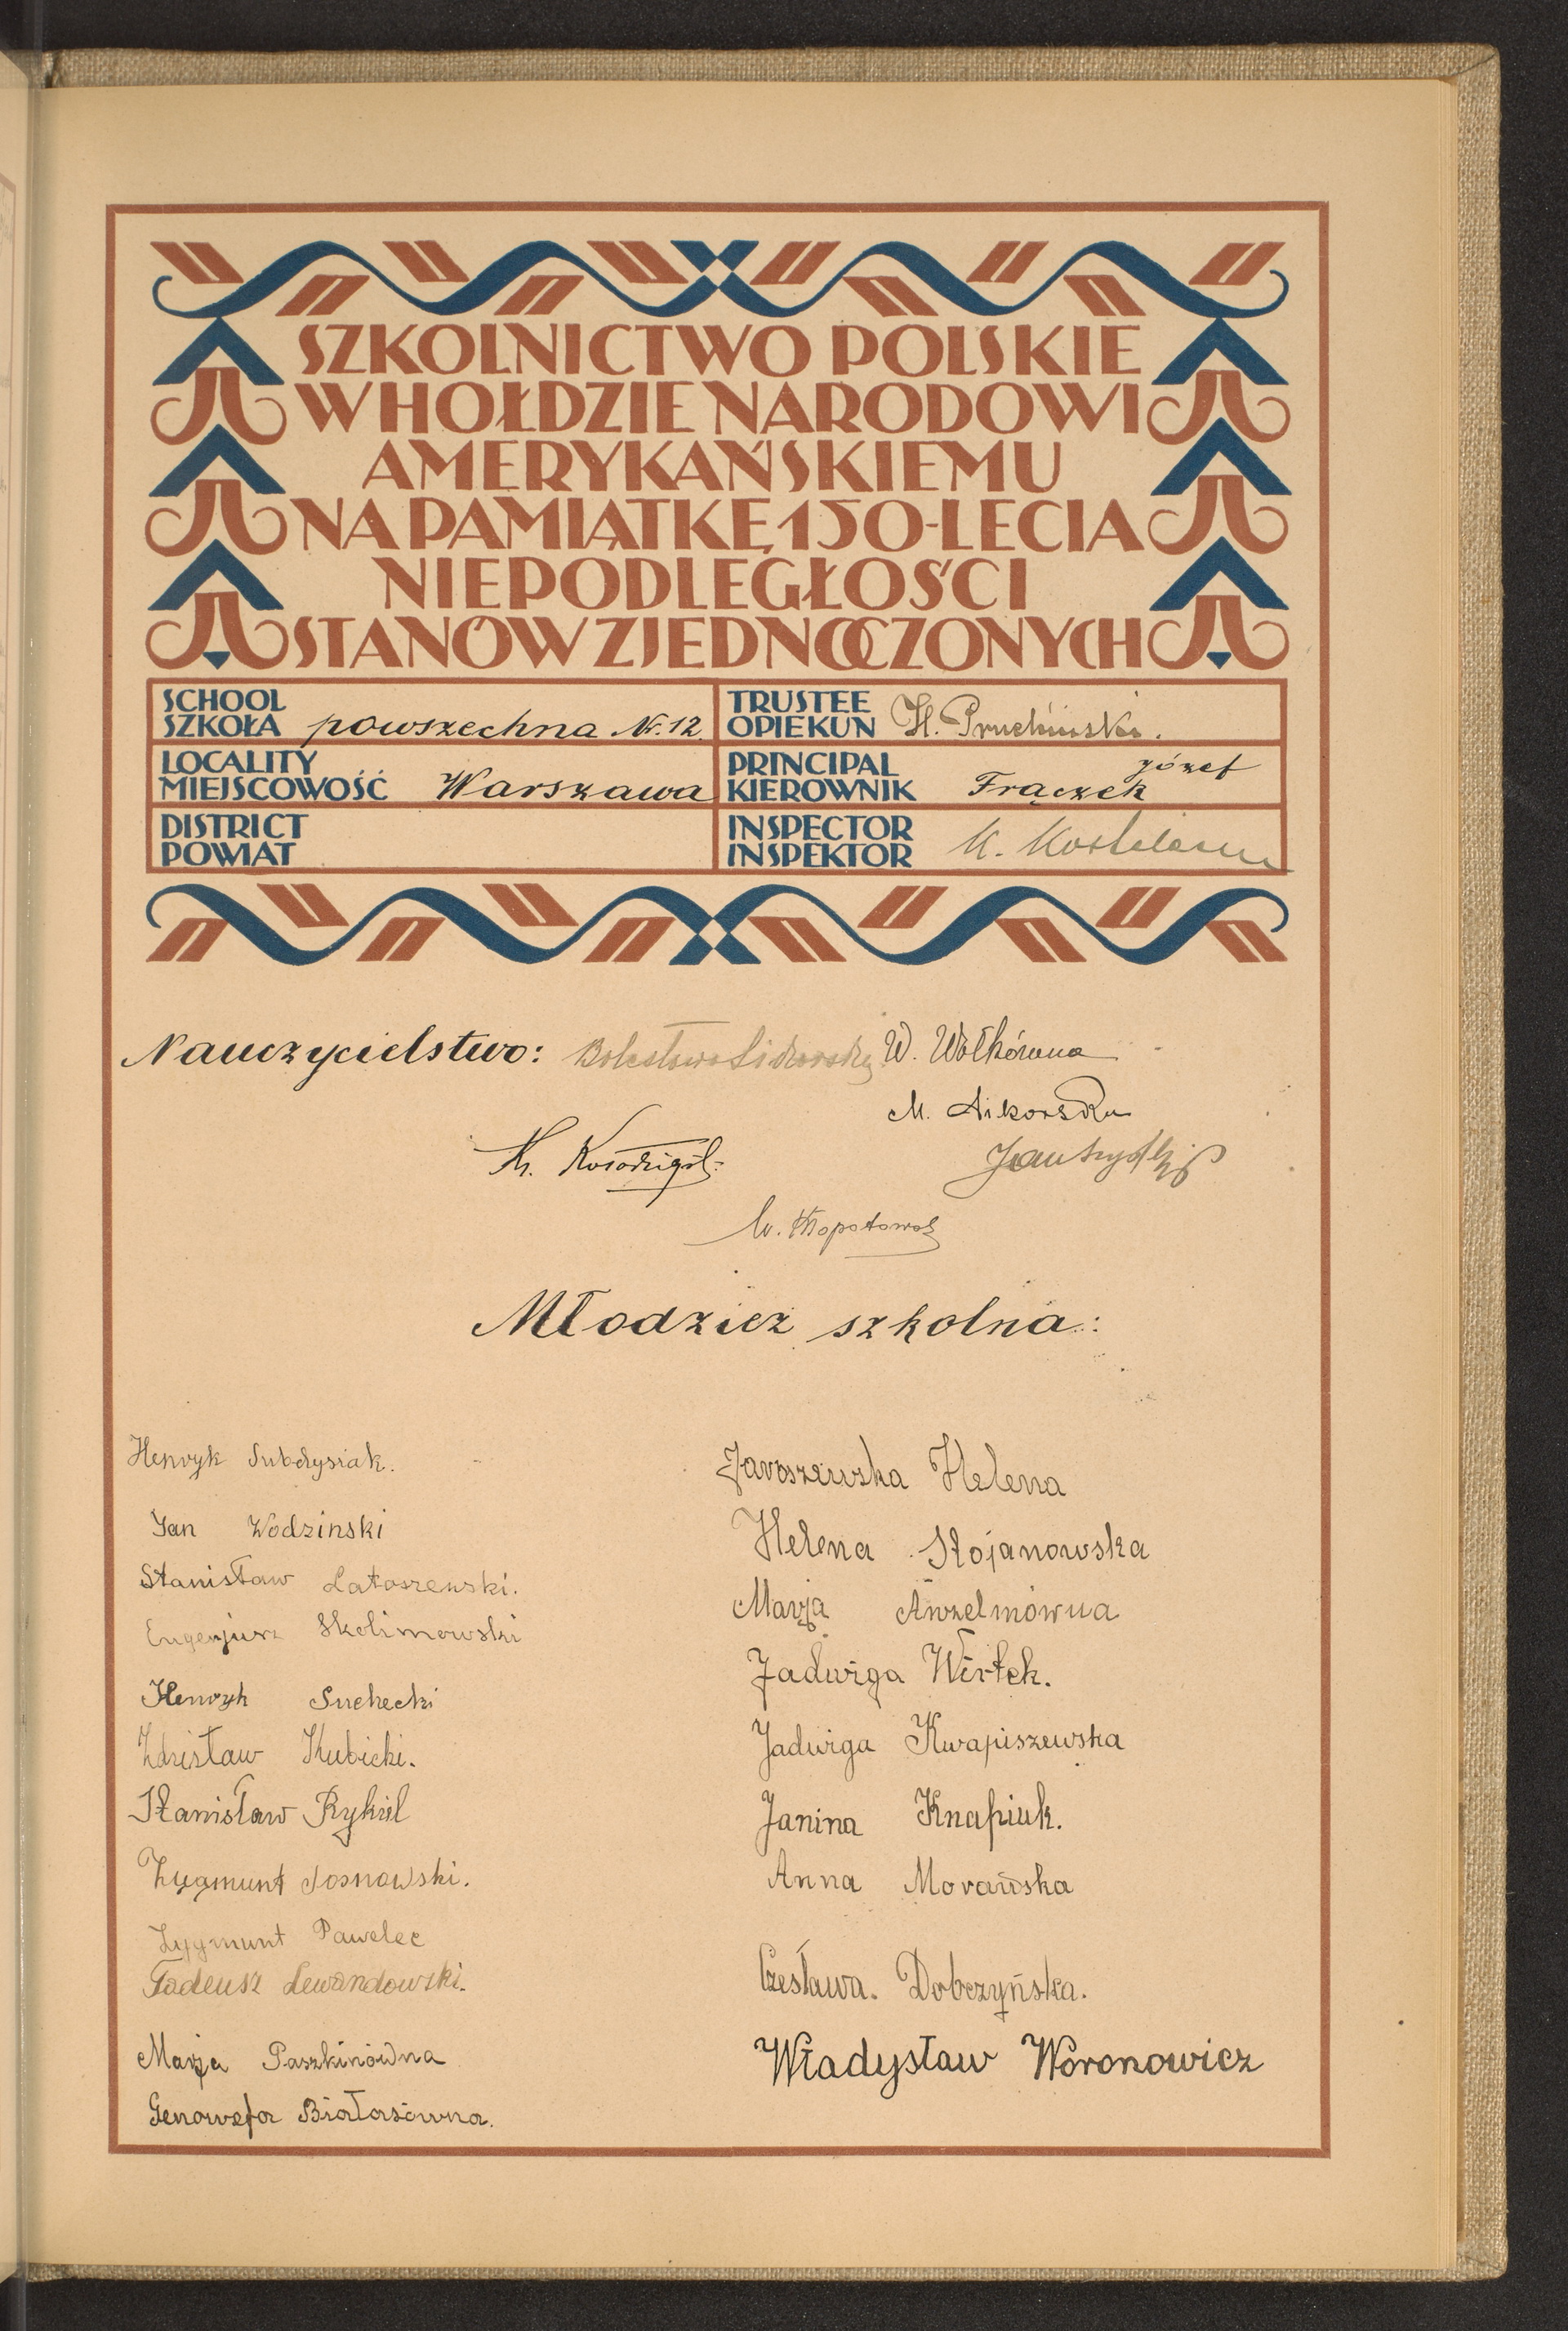 SZKOLNICTWO POLSKIE
W HOŁDZIE NARODOWI
AMERYKAŃSKIEMU
NA PAMIĄTKĘ 150-LECIA
NIEPODLEGŁOŚCI
STANÓW ZJEDNOCZONYCH
SCHOOL
SZKOŁA powszechna Nr. 12.
TRUSTEE
OPIEKUN H.
LOCALITY
MIEJSCOWOŚĆ Warszawa
PRINCIPAL
KIEROWNIK Frączek Józef
DISTRICT
POWIAT
INSPECTOR
INSPEKTOR K.
Nauczycielstwo: W. Wołkówna
M. Sikorska
W. Kłopotowski
Młodzież szkolna:
Henryk
Jan Wodzinski
Stanisław Latoszewski.
Eugenjusz Skolimowski
Henryk Suchecki
Zdzisław Kubicki.
Stanisław Rykiel
Zygmunt Sosnowski.
Zygmunt Pawelec
Tadeusz Lewandowski.
Marja Paszkinówna
Genowefa Białasówna.
Jaroszewska Helena
Helena Stojanowska
Marja Anzelmówna
Jadwiga Wirtek.
Jadwiga Kwapiszewska
Janina Knapiuk.
Anna Morawska
Czesława. Dobczyńska.
Władysław Woronowicz